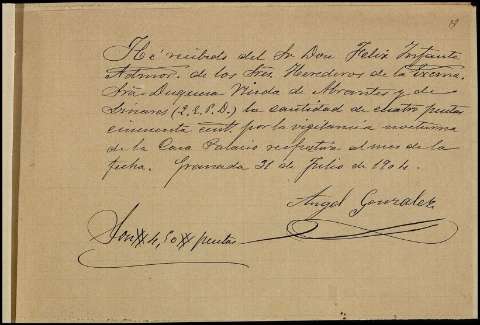 He recibido del Sr Don Felix Infante
Admor. de los Sres. Herederos de la Excma.
Sra Duquesa Viuda de Abrantes y de
Linares (Q. E. P. D.) la cantidad de cuatro pesetas
cincuenta cent. por la vigilancia nocturna
de la Casa Palacio respectiva al mes de la
fecha. Granada 31 de Julio de 1904.
Angel Gonzalez
Son 4,50 pesetas